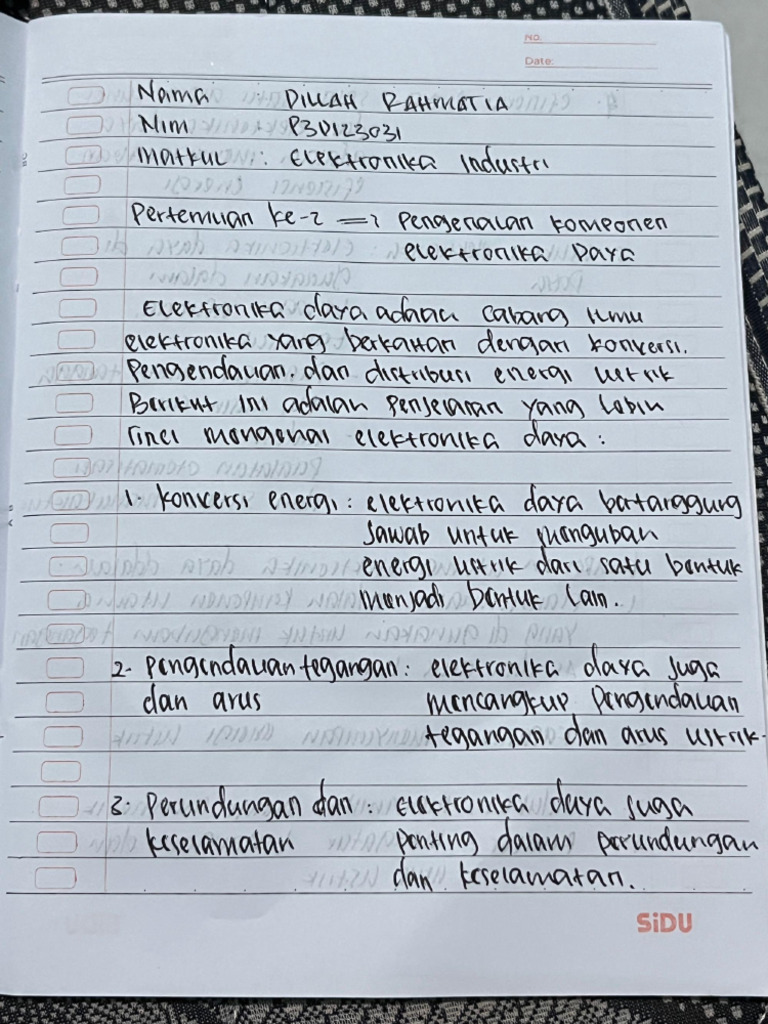 No.
Date:
Nama : DILLAH RAHMATIA
Nim : P3D123031
Matkul : Elektronika Industri
Pertemuan ke-2 => Pengenalan komponen
elektronika Daya
Elektronika daya adalah cabang ilmu
elektronika yang berkaitan dengan konversi.
Pengendalian. dan distribusi energi listrik
Berikut ini adalah penjelasan yang lebih
rinci mengenai elektronika daya :
1. konversi energi : elektronika daya bertanggung
Jawab untuk mengubah
energi listrik dari satu bentuk
menjadi bentuk lain.
2. pengendalian tegangan : elektronika daya juga
dan arus mencangkup pengendalian
tegangan dan arus listrik.
3. Perlindungan dan : elektronika daya juga
keselamatan penting dalam perlindungan
dan keselamatan.
SiDU